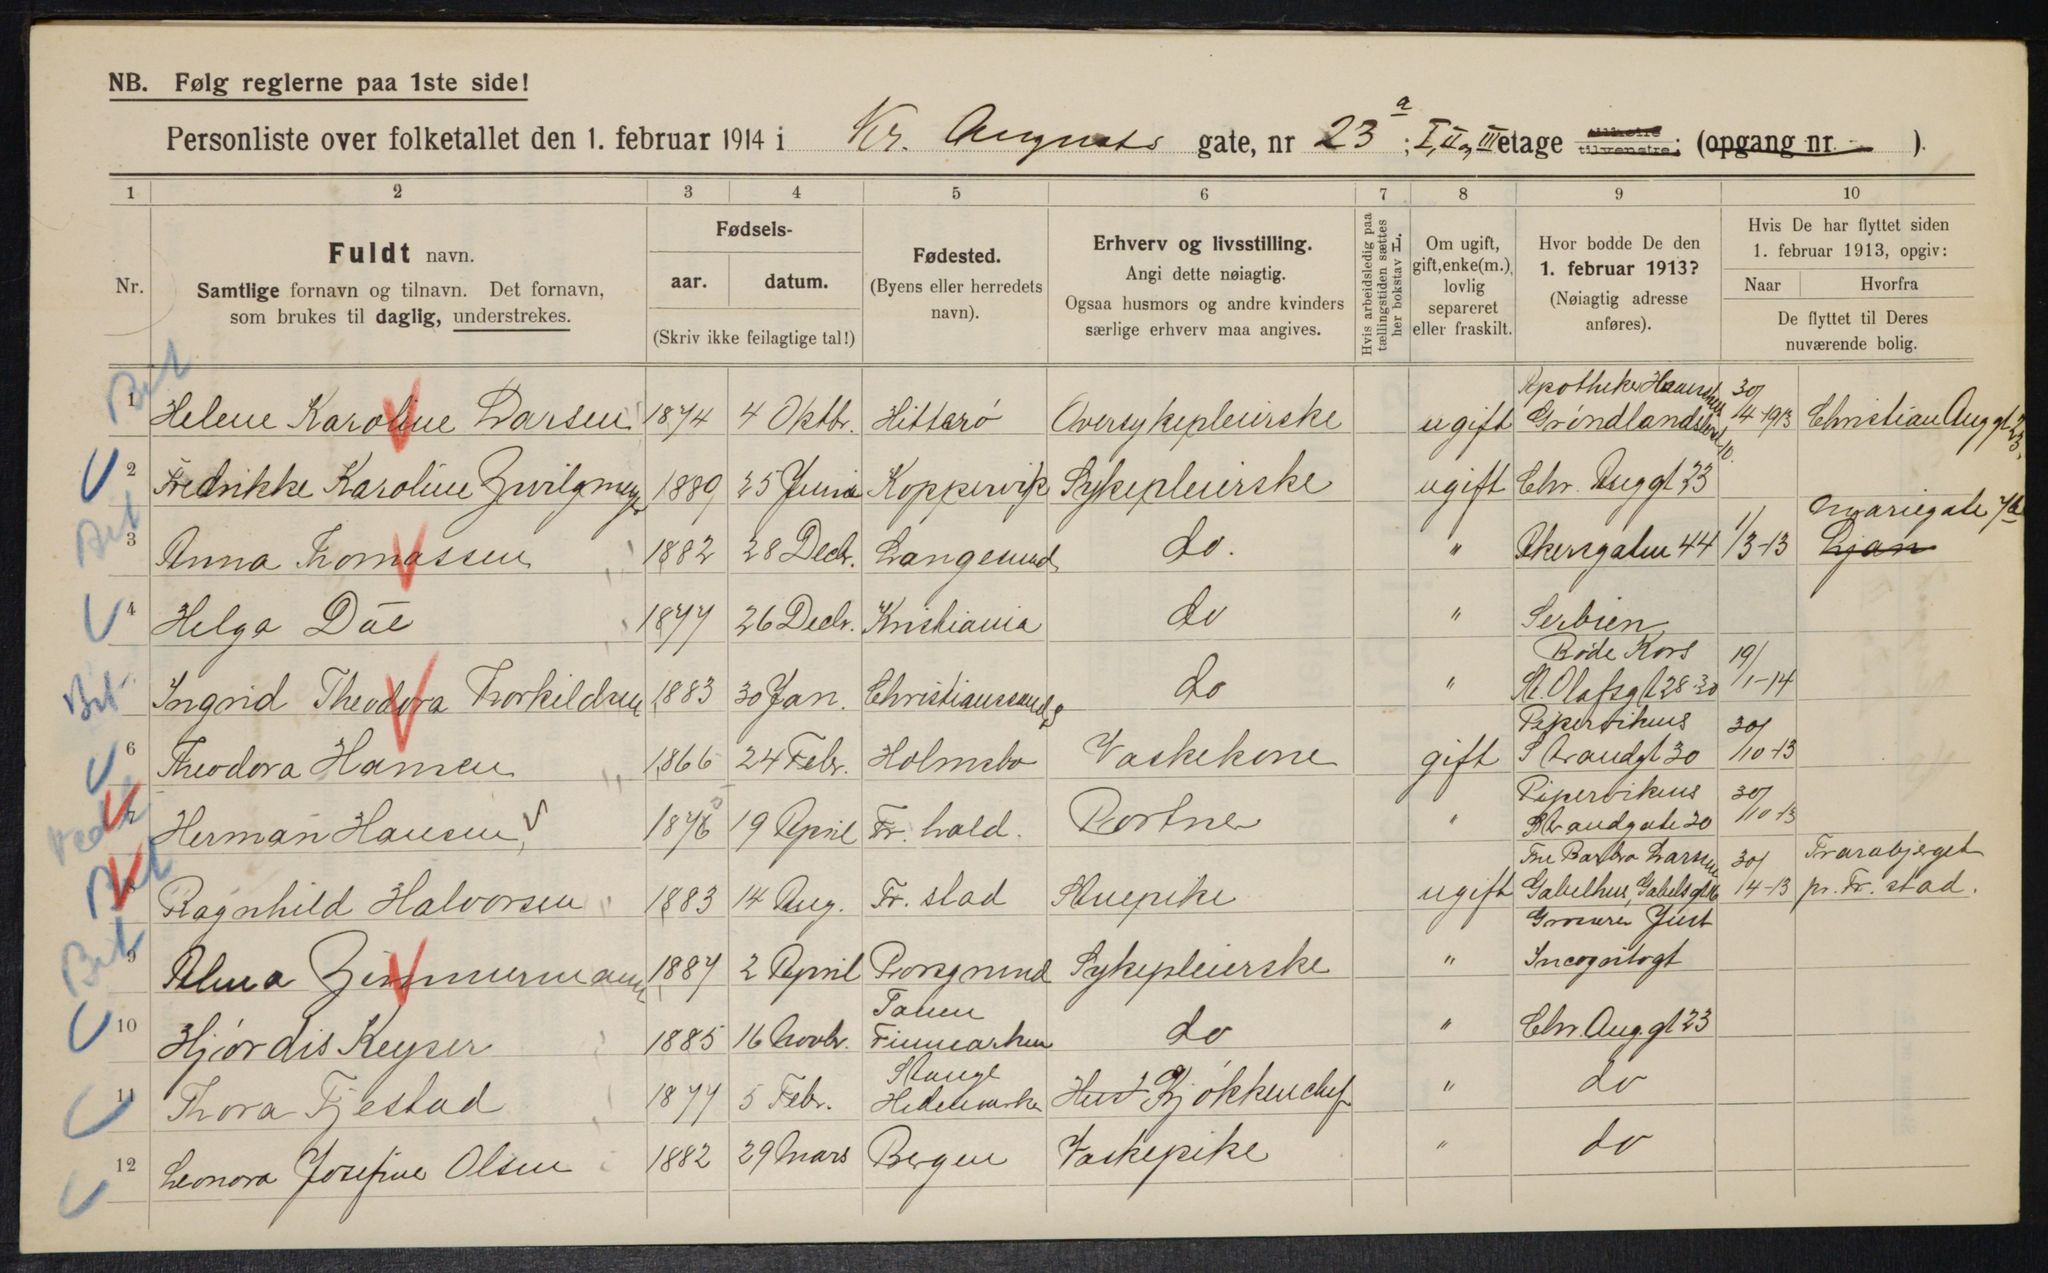 NB. Følg reglerne paa 1ste side!
Personliste over folketallet den 1. februar 1914 i Kr. Augusts gate, nr 23 a ; I, II og III etage tilhøire tilvenstre; (opgang nr ).
1 2 3 4 5 6 7 8 9 10
Nr.
Fuldt navn.
Samtlige fornavn og tilnavn. Det fornavn,
som brukes til daglig, understrekes.
Fødsels-
aar. datum.
(Skriv ikke feilagtige tal!)
Fødested.
(Byens eller herredets
navn).
Erhverv og livsstilling.
Angi dette nøiagtig.
Ogsaa husmors og andre kvinders
særlige erhverv maa angives.
Hvis arbeidsledig paa
tællingstiden sættes
her bokstav L.
Om ugift,
gift, enke(m.),
lovlig
separeret
eller fraskilt.
Hvor bodde De den
1. februar 1913?
(Nøiagtig adresse
anføres).
Hvis De har flyttet siden
1. februar 1913, opgiv:
Naar Hvorfra
De flyttet til Deres
nuværende bolig.
1 Helene Karoline Larsen 1874 4 Oktbr. Hitterö Oversykepleierske ugift Apotheker Grøndlandsleret 10. 30/4-1913 Christian Aug gt 23.
2 Fredrikke Karoline Zwilgmeyer 1889 25 Juni Koppervik Sykepleierske ugift Chr. Aug gt 23
3 Anna Thomassen 1882 28 Decbr. Langesund do. " Akersgaten 44 1/3-13 Mariegate 7b Ljan
4 Helga Däe 1877 26 Decbr. Kristiania do " Serbien
Ingrid Theodora Thorkildsen 1883 30 Jan. Christianssands do " Røde Kors St. Olafsgt 28-30 19/1-14
6 Theodora Hansen 1866 24 Febr. Holmsbo Vaskekone gift Pipervikens Strandgt 30 30/10-13
7 Herman Hansen 1876 5 19 April Fr. hald. Portner " Pipervikens Strandgate 30 30/10-13
8 Ragnhild Halvorsen 1883 14 Aug. Fr. stad Stuepike ugift Fru Barbra Larsen Gabelhus, Gabelsgt 16 30/14-13 Trarabjerget pr. Fr. stad.
9 Alma Zimmermann 1887 2 April Porsgrund Sykepleierske " Grosserer Just Incognitogt
10 Hjördis Keyser 1885 16 Novbr. Tanen Finmarken do " Chr. Aug. gt 23
11 Thora Fjestad 1877 5 Febr. Stange Hedemarken Hust Kjøkkenchef " do
12 Leonora Josefine Olsen 1882 29 Mars Bergen Vaskepike " do